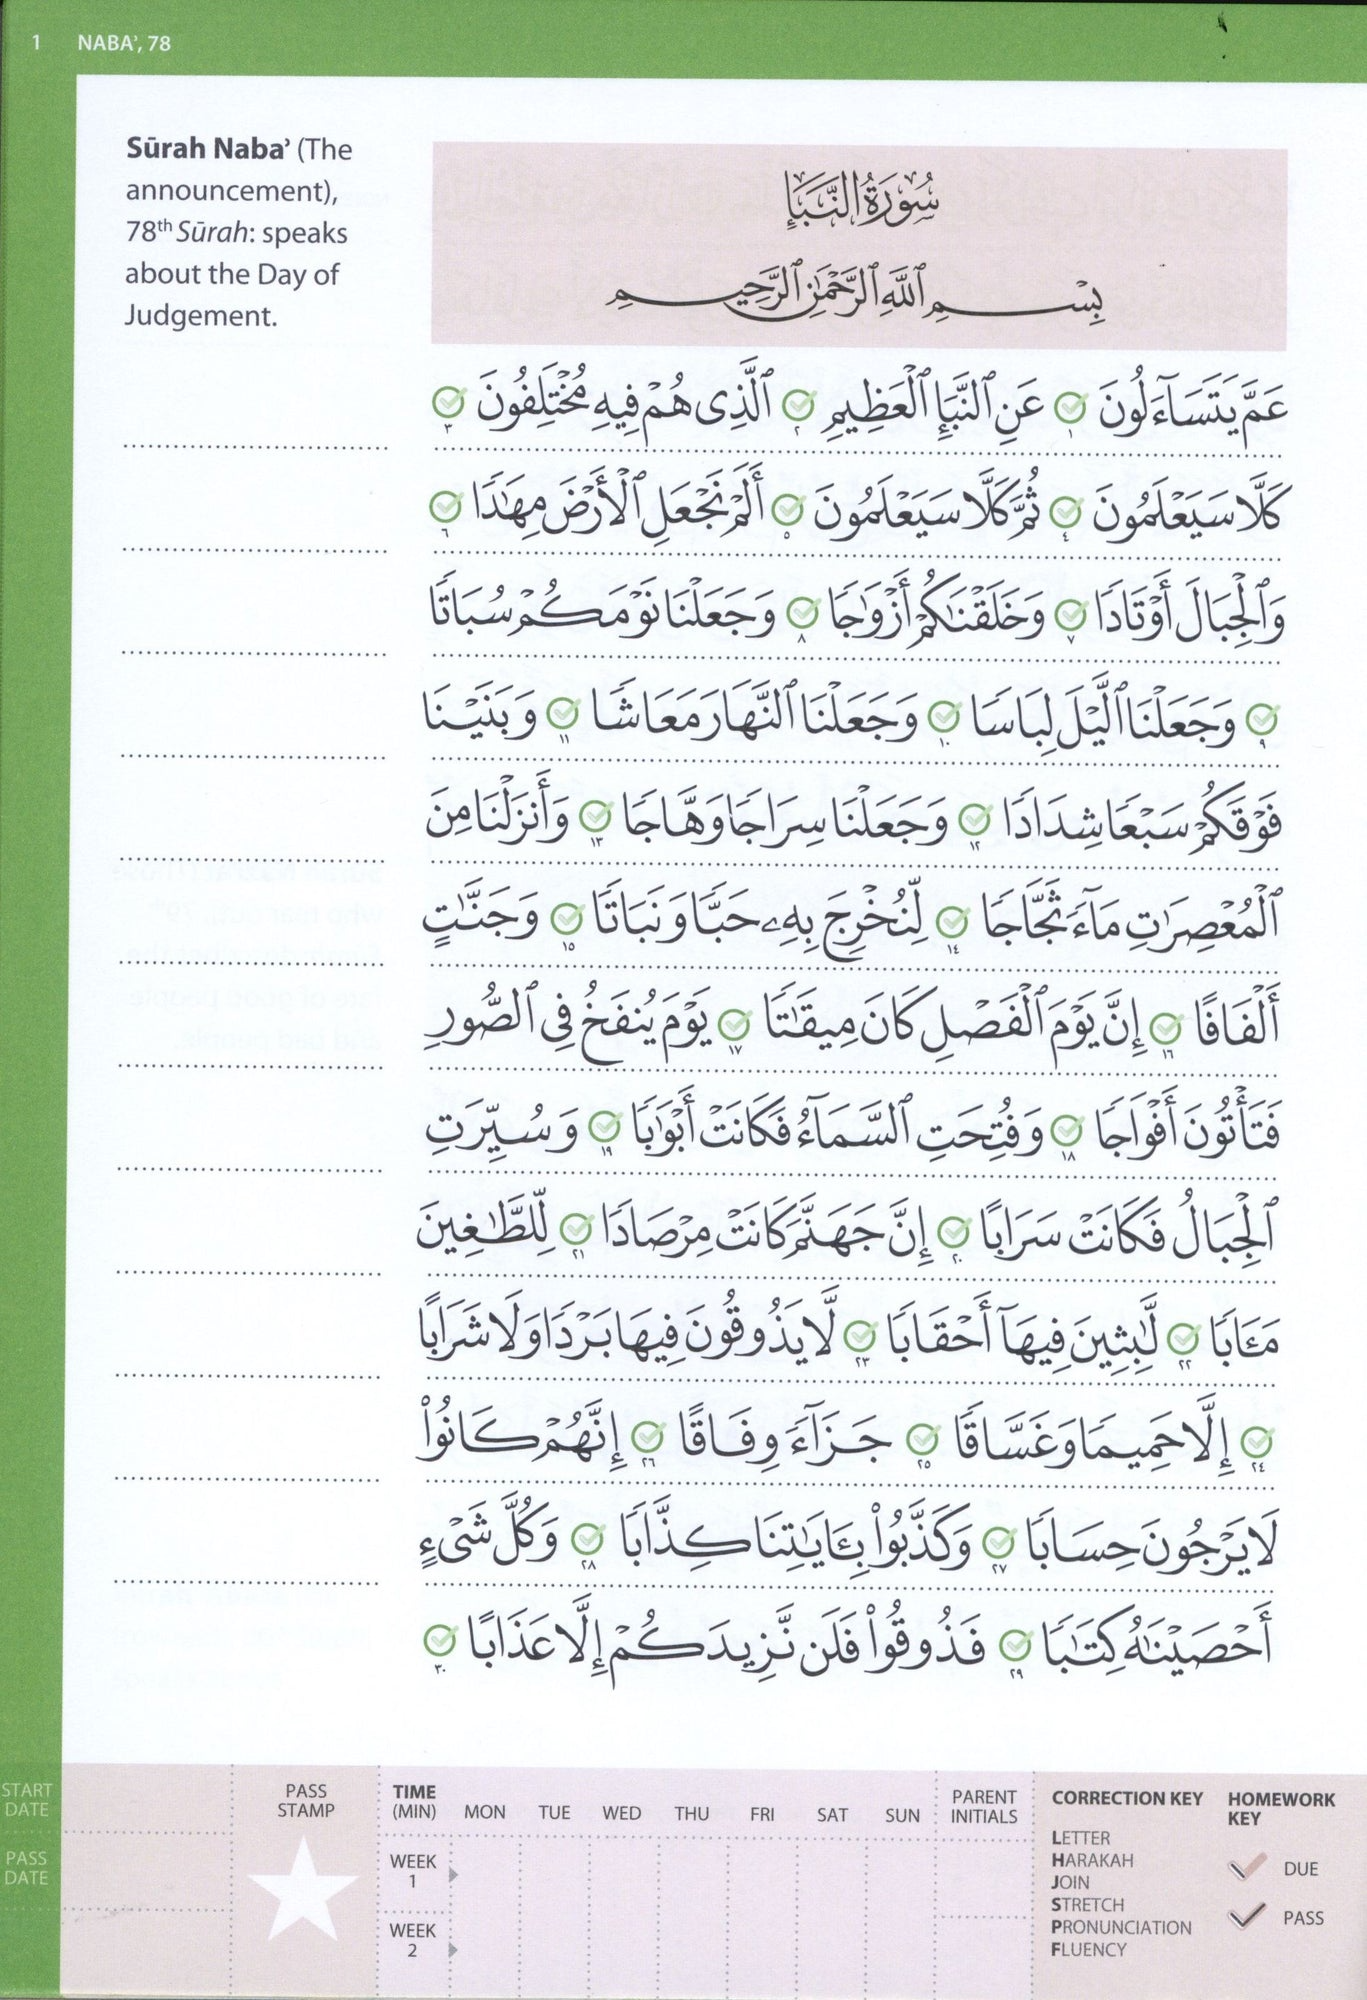 1 NABAʾ, 78
Sūrah Nabaʾ (The
announcement),
78th Sūrah: speaks
about the Day of
Judgement.
سُورَةُ النَّبَإِ
بِسْمِ ٱللَّهِ ٱلرَّحْمَٰنِ ٱلرَّحِيمِ
عَمَّ يَتَسَآءَلُونَ ١ عَنِ ٱلنَّبَإِ ٱلْعَظِيمِ ٢ ٱلَّذِى هُمْ فِيهِ مُخْتَلِفُونَ ٣
كَلَّا سَيَعْلَمُونَ ٤ ثُمَّ كَلَّا سَيَعْلَمُونَ ٥ أَلَمْ نَجْعَلِ ٱلْأَرْضَ مِهَٰدًا ٦
وَٱلْجِبَالَ أَوْتَادًا ٧ وَخَلَقْنَٰكُمْ أَزْوَٰجًا ٨ وَجَعَلْنَا نَوْمَكُمْ سُبَاتًا
٩ وَجَعَلْنَا ٱلَّيْلَ لِبَاسًا ١٠ وَجَعَلْنَا ٱلنَّهَارَ مَعَاشًا ١١ وَبَنَيْنَا
فَوْقَكُمْ سَبْعًا شِدَادًا ١٢ وَجَعَلْنَا سِرَاجًا وَهَّاجًا ١٣ وَأَنزَلْنَا مِنَ
ٱلْمُعْصِرَٰتِ مَآءً ثَجَّاجًا ١٤ لِّنُخْرِجَ بِهِۦ حَبًّا وَنَبَاتًا ١٥ وَجَنَّٰتٍ
أَلْفَافًا ١٦ إِنَّ يَوْمَ ٱلْفَصْلِ كَانَ مِيقَٰتًا ١٧ يَوْمَ يُنفَخُ فِى ٱلصُّورِ
فَتَأْتُونَ أَفْوَاجًا ١٨ وَفُتِحَتِ ٱلسَّمَآءُ فَكَانَتْ أَبْوَٰبًا ١٩ وَسُيِّرَتِ
ٱلْجِبَالُ فَكَانَتْ سَرَابًا ٢٠ إِنَّ جَهَنَّمَ كَانَتْ مِرْصَادًا ٢١ لِّلطَّٰغِينَ
مَـَٔابًا ٢٢ لَّٰبِثِينَ فِيهَآ أَحْقَابًا ٢٣ لَّا يَذُوقُونَ فِيهَا بَرْدًا وَلَا شَرَابًا
٢٤ إِلَّا حَمِيمًا وَغَسَّاقًا ٢٥ جَزَآءً وِفَاقًا ٢٦ إِنَّهُمْ كَانُوا۟
لَا يَرْجُونَ حِسَابًا ٢٧ وَكَذَّبُوا۟ بِـَٔايَٰتِنَا كِذَّابًا ٢٨ وَكُلَّ شَىْءٍ
أَحْصَيْنَٰهُ كِتَٰبًا ٢٩ فَذُوقُوا۟ فَلَن نَّزِيدَكُمْ إِلَّا عَذَابًا ٣٠
START
DATE
PASS
DATE
PASS
STAMP
TIME
(MIN) MON TUE WED THU FRI SAT SUN
WEEK
1
WEEK
2
PARENT
INITIALS
CORRECTION KEY
LETTER
HARAKAH
JOIN
STRETCH
PRONUNCIATION
FLUENCY
HOMEWORK
KEY
DUE
PASS